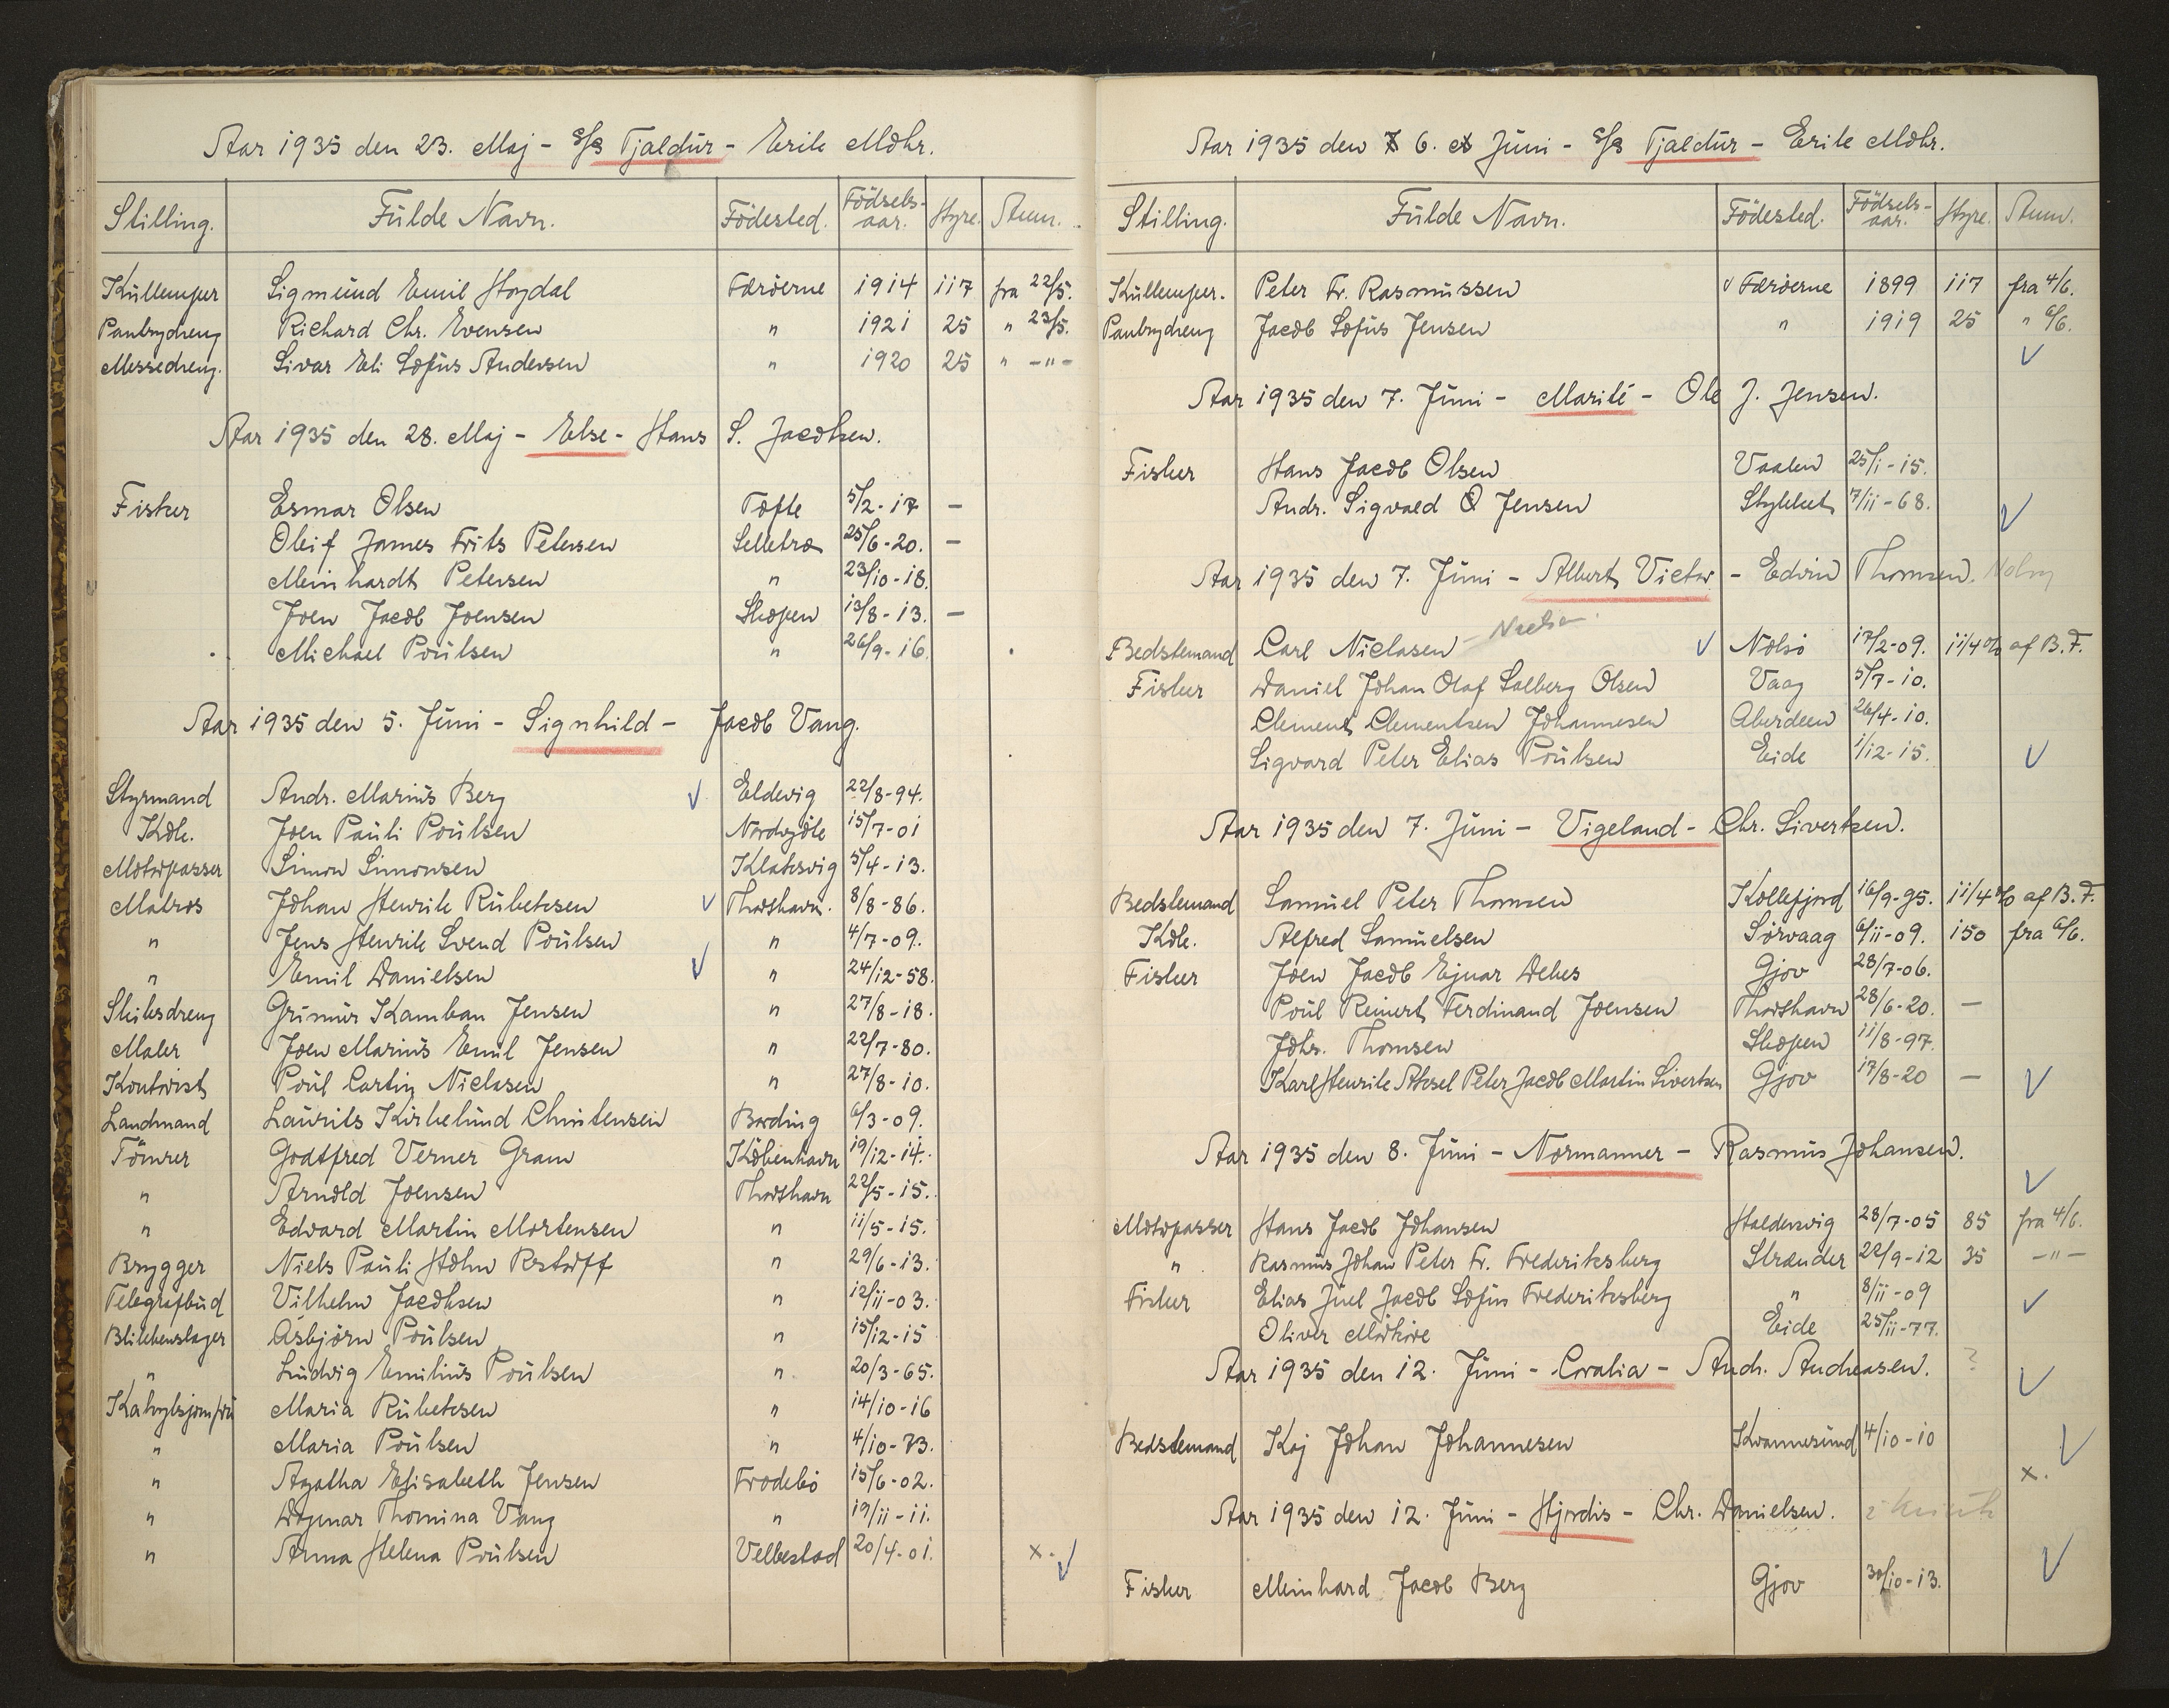 Aar 1935 den 23. Maj - s/s Tjaldur - Erik Mohr.
Stilling. Fulde Navn. Födested. Födsels-aar. Hyre. Anm.
Kullemper Sigmund Emil Hoydal Færöerne 1914 117 fra 22/5.
Pantrydreng Richard Chr. Evensen " 1921 25 " 23/5.
Messedreng. Sivar Eli Sofus Andersen " 1920 25 " -"-
Aar 1935 den 28. Maj - Else - Hans S. Jacobsen.
Fisker Esmar Olsen Tofte 5/2-17 -
Oleif James Frits Petersen Selletræ 25/6-20. -
Meinhardt Petersen " 23/10-18.
Joen Jacob Joensen Skopen 13/8-13. -
Michael Poulsen " 26/9-16.
Aar 1935 den 5. Juni - Signhild - Jacob Vang.
Styrmand Andr. Marius Berg Eldevig 22/8-94.
Kok. Joen Pauli Poulsen Nordrgöte 15/7-01
Motorpasser Simon Simonsen Klaksvig 5/4-13.
Matros Johan Henrik Rubeksen Thorshavn. 8/8-86.
" Jens Henrik Svend Poulsen " 4/7-09.
" Emil Danielsen " 24/12-58.
Skibsdreng Grimur Kamban Jensen " 27/8-18.
Maler Joen Marius Emil Jensen " 22/7-80.
Kontorist Poul Cartin Niclasen " 27/8-10.
Landmand Laurits Kirkelund Christensen Bording 6/3-09.
Tömrer Godtfred Verner Gram Köbenhavn 19/12-14.
" Arnold Joensen Thorshavn 22/5-15.
" Edvard Martin Mortensen " 11/5-15.
Brygger Niels Pauli Holm Restorff " 29/6-13.
Telegrafbud Vilhelm Jacobsen " 12/11-03.
Blikkenslager Asbjörn Poulsen " 15/12-15
" Ludvig Emilius Poulsen " 20/3-65.
Kahytsjomfru Maria Rubeksen " 14/10-16
" Maria Poulsen " 4/10-73.
" Agatha Elisabeth Jensen Frodebö 15/6-02.
" Dagmar Thomina Vang " 19/11-11.
" Anna Helena Poulsen Velbestad 20/4-01. x.
Aar 1935 den 6. Juni - s/s Tjaldur - Erik Mohr.
Stilling. Fulde Navn. Födested. Födsels-aar. Hyre. Anm.
Kullemper. Peter Fr. Rasmussen Færöerne 1899 117 fra 4/6.
Pantrydreng Jacob Sofus Jensen " 1919 25 " 6/6.
Aar 1935 den 7. Juni - Marité - Ole J. Jensen.
Fisker Hans Jacob Olsen Vaalen 25/1-15.
Andr. Sigvald O Jensen Stykket 7/11-68.
Aar 1935 den 7. Juni - Albert Victor - Edvin Thomsen. Nolsoy
Bedstemand Carl Niclasen Nolsö 17/2-09. 11/4% af B.F.
Fisker Daniel Johan Olaf Solberg Olsen Vaag 5/7-10.
Clement Clementsen Johannesen Aberdeen 26/4-10.
Sigvard Peter Elias Poulsen Eide 1/12-15.
Aar 1935 den 7. Juni - Vigeland - Chr. Sivertsen.
Bedstemand Samuel Peter Thomsen Kollefjord 16/9-95. 11/4% af B.F.
Kok. Alfred Samuelsen Sörvaag 6/11-09. 150 fra 6/6.
Fisker Joen Jacob Ejnar Debes Gjov 23/7-06.
Poul Reinert Ferdinand Joensen Thorshavn 28/6-20. -
Johs. Thomsen Skopen 11/8-97.
Karl Henrik Aksel Peter Jacob Martin Sivertsen Gjov 17/8-20 -
Aar 1935 den 8. Juni - Normanner - Rasmus Johansen.
Motorpasser Hans Jacob Johansen Haldersvig 28/7-05 85 fra 4/6.
" Rasmus Johan Peter Fr. Frederiksberg Strænder 22/9-12 35 -"-
Fisker Elias Juel Jacob Sofus Frederiksberg " 8/11-09
Oliver Mörköre Eide 25/11-77.
Aar 1935 den 12. Juni - Coralia - Andr. Andreasen. ?
Bedstemand Kaj Johan Johannesen Kvannesund 4/10-10
x.
Aar 1935 den 12. Juni - Hjørdis - Chr. Danielsen.
Fisker Meinhard Jacob Berg Gjov 30/10-13.